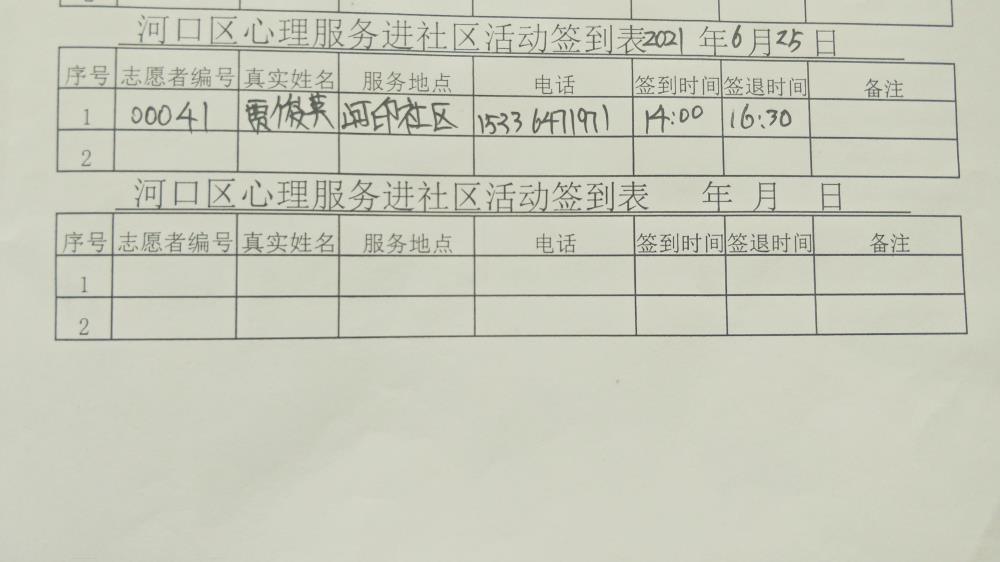 河口区心理服务进社区活动签到表2021年6月25日
序号 志愿者编号 真实姓名 服务地点 电话 签到时间 签退时间 备注
1 00041 贾俊英 河印社区 15336471971 14:00 16:30
2
河口区心理服务进社区活动签到表 年 月 日
序号 志愿者编号 真实姓名 服务地点 电话 签到时间 签退时间 备注
1
2